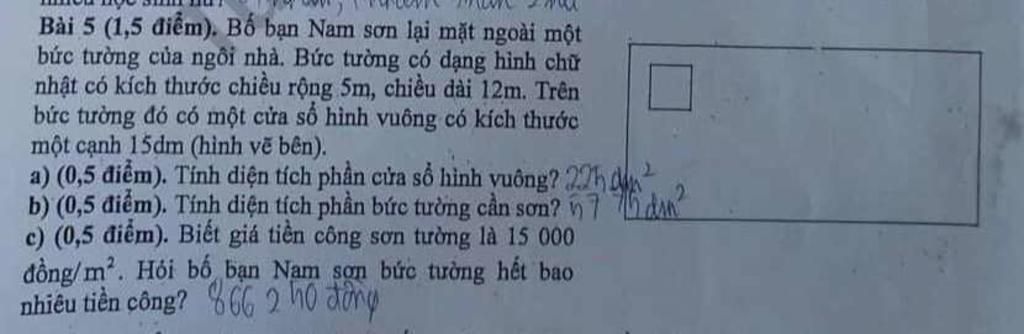 Bài 5 (1,5 điểm). Bố bạn Nam sơn lại mặt ngoài một
bức tường của ngôi nhà. Bức tường có dạng hình chữ
nhật có kích thước chiều rộng 5m, chiều dài 12m. Trên
bức tường đó có một cửa sổ hình vuông có kích thước
một cạnh 15dm (hình vẽ bên).
a) (0,5 điểm). Tính diện tích phần cửa sổ hình vuông? 225 dm²
b) (0,5 điểm). Tính diện tích phần bức tường cần sơn? 57 75 dm²
c) (0,5 điểm). Biết giá tiền công sơn tường là 15 000
đồng/m². Hỏi bố bạn Nam sơn bức tường hết bao
nhiêu tiền công? 866 250 đồng